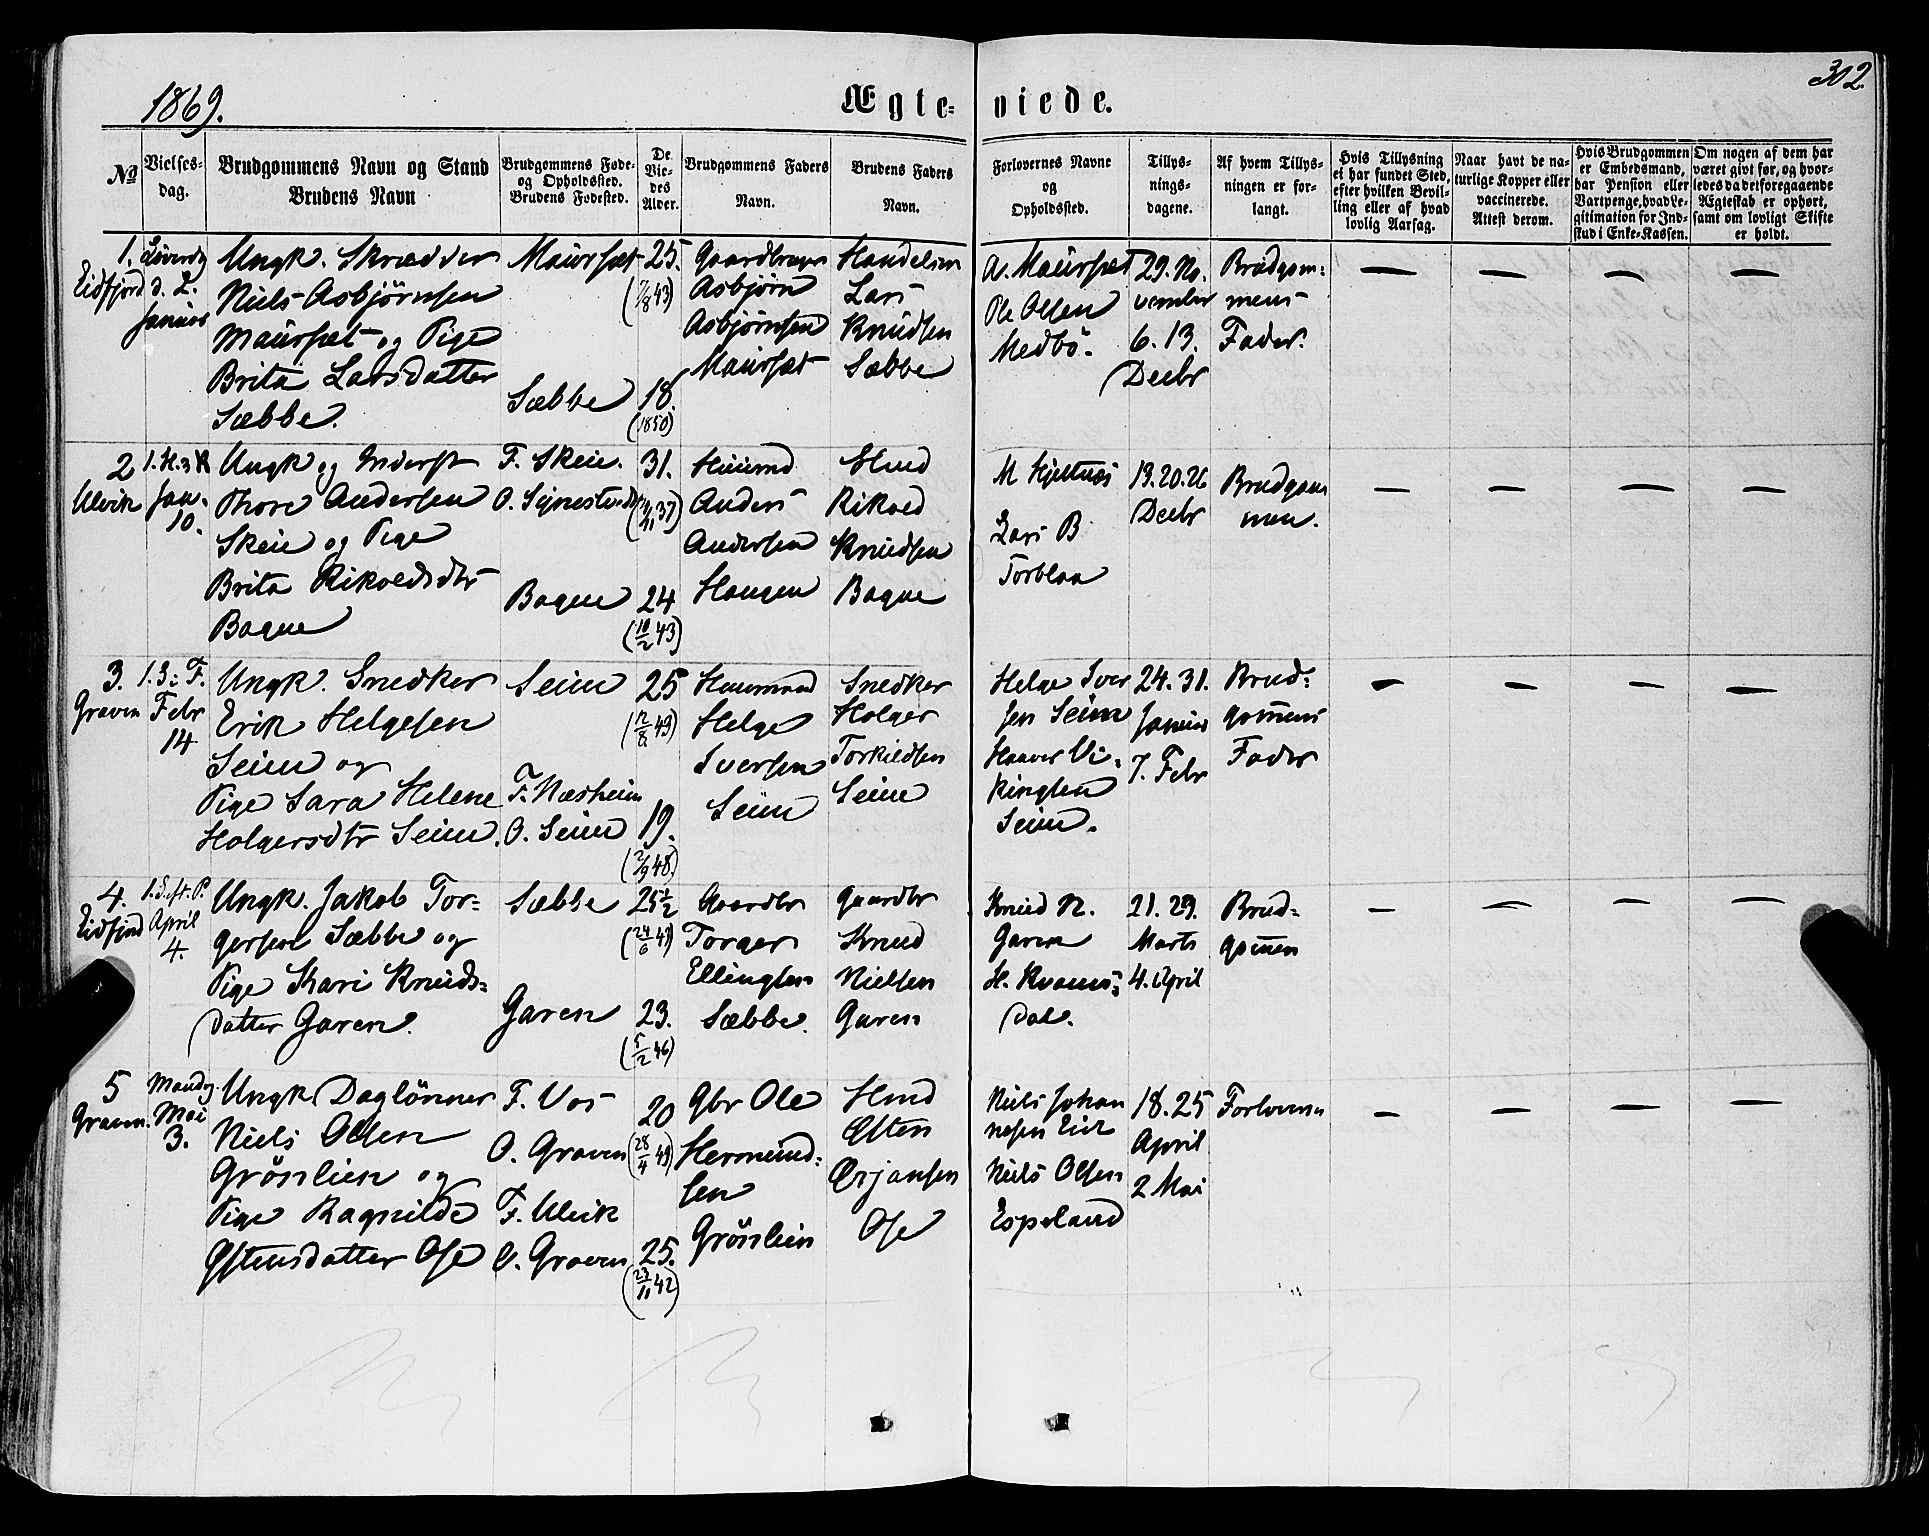 302.
1869.
Ægte- viede.
No
Vielses-
dag.
Brudgommens Navn og Stand
Brudens Navn
Brudgommens Føde-
og Opholdssted.
Brudens Fødested.
De
Vie-
des
Alder.
Brudgommens Faders
Navn.
Brudens Faders
Navn.
Forlovernes Navne
og
Opholdssted.
Tillys-
nings-
dagene.
Af hvem Tillys-
ningen er for-
langt.
Hvis Tillysning
ei har fundet Sted,
efter hvilken Bevil-
ling eller af hvad
lovlig Aarsag.
Naar havt de na-
turlige Kopper eller
vaccinerede.
Attest derom.
Hvis Brudgommen
er Embedsmand,
har Pension eller
Vartpenge, hvad Le-
gitimation for Ind-
skud i Enke-Kassen.
Om nogen af dem har
været givt før, og hvor-
ledes da det foregaaende
Ægteskab er ophørt,
samt om lovligt Skifte
er holdt.
1.
Eidfjord
Löverdg
d. 2.
Januar
Ungk. Skrædder
Niels Asbjørnsen
Maursæt og Pige
Brita Larsdatter
Sæbbe.
Maursæt
Sæbbe
25.
(7/8 43)
18.
(1850)
Gaardbruger
Asbjørn
Asbjørnsen
Maursæt
Handelsm
Lars
Knudsen
Sæbbe
A. Maursæt
Ole Olsen
Medbö.
29. No-
vember
6. 13.
Decbr
Brudgom-
mens
Fader.
2
Ulvik
Jan.
10.
Ungk og Inderst
Thore Andersen
Skeie og Pige
Brita Rikoldsdtr
Bague
F. Skeie.
O. Sysnestvedt
Bague
31.
24
(10/2 43)
Huusmd
Anders
Andersen
Haugen
Hmd
Rikold
Knudsen
Bague
M Hjeltnæs
Lars B
Torblaa
19. 20. 26
Decbr
Brudgom
men.
3.
Graven
1. S. i F.
Febr
14
Ungk. Snedker
Erik Helgesen
Seim og
Pige Sara Helene
Holgersdtr Seim.
Seim
F. Næsheim
O. Seim
25
(12/8 43)
19.
(2/9 48)
Huusmand
Helge
Iversen
Seim
Snedker
Holger
Torkildsen
Seim
Helge Iver
sen Seim
Haaver Vi-
kingsen
Seim.
24. 31.
Januar
7. Febr
Brud-
gommens
Fader
4.
Eidfjord
1. S. eft. P.
April
4.
Ungk. Jakob Tor-
gersen Sæbbe og
Pige Kari Knuds-
datter Garen.
Sæbbe
Garen
25 1/2
(24/6 43)
23.
(5/2 46)
Gaardbr
Torger
Ellingsen
Sæbbe.
Gaardbr
Knud
Nielsen
Garen
Knud N.
Garen
H. Kvams-
dal.
21. 29.
Marts
4. April
Brud-
gommen
5
Graven.
Mandg
Mai
3.
Ungk Daglönner
Niels Olsen
Grönlien og
Pige Ragnilde
Östensdatter Ose
F. Vos
O. Graven
F. Ulvik
O. Graven
20
(28/4 49)
25.
(23/11 42)
Gbr Ole
Hermund-
sen
Grönlien
Hmd
Østen
Ørjansen
Ose
Niels Johan
nesen Eide
Niels Olsen
Espeland
18. 25
April
2 Mai
Forloveren